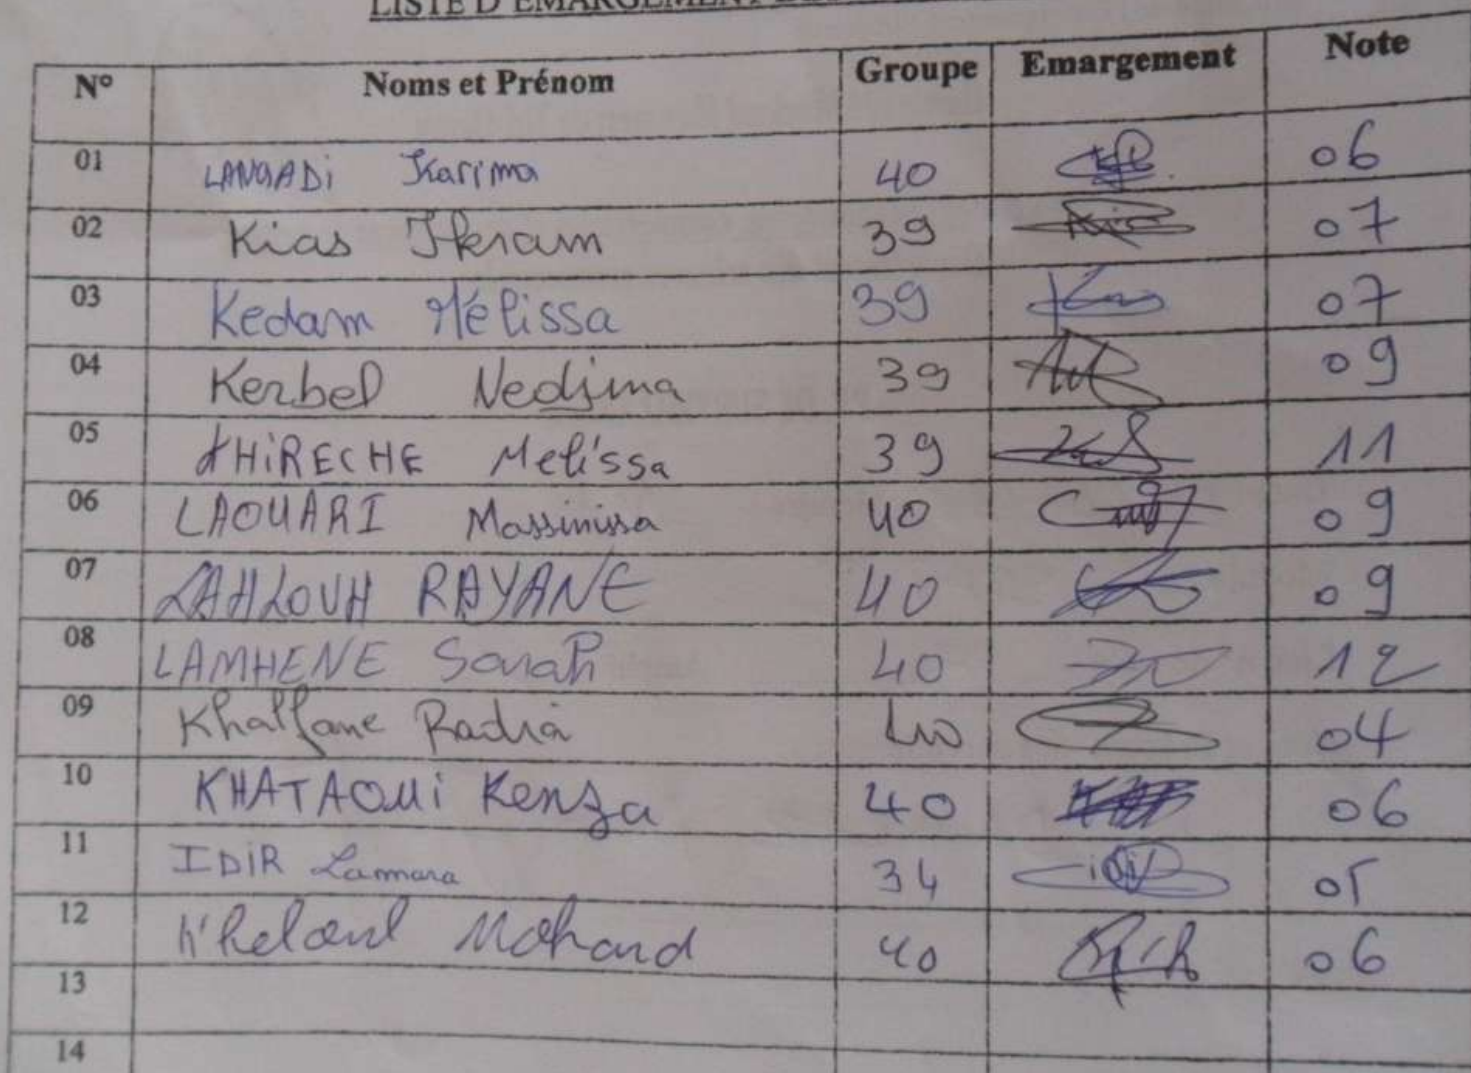 LISTE D'EMARGEMENT
N° Noms et Prénom Groupe Emargement Note
01 LANGADi Karima 40 06
02 Kias Ikram 39 07
03 Kedam Mélissa 39 07
04 Kerbel Nedjma 39 09
05 KHiRECHE Melissa 39 11
06 LAOUARI Massinissa 40 09
07 LAHLOUH RAYANE 40 09
08 LAMHENE Sarah 40 12
09 Khalfane Radia 40 04
10 KHATAOUi Kenza 40 06
11 IDiR Lamara 34 05
12 K'heloul Mohand 40 06
13
14